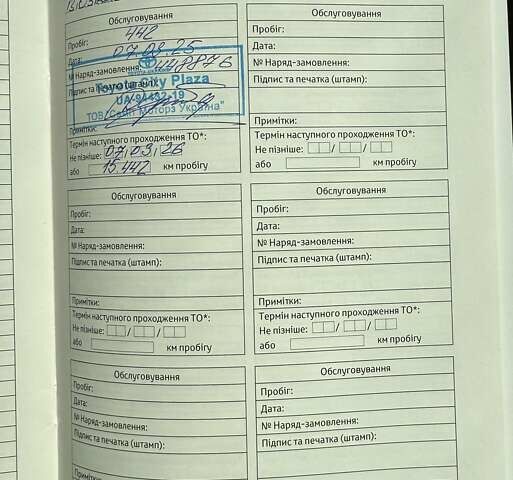 Обслуговування
Пробіг: 442
Дата: 07.03.25
№ Наряд-замовлення: 448876
Підпис та печатка (штамп):
Toyota City Plaza
UA-94482-19
Примітки:
Термін наступного проходження ТО*:
Не пізніше: 07/03/26
або 15.442 км пробігу
Обслуговування
Пробіг:
Дата:
№ Наряд-замовлення:
Підпис та печатка (штамп):
Примітки:
Термін наступного проходження ТО*:
Не пізніше: / /
або км пробігу
Обслуговування
Пробіг:
Дата:
№ Наряд-замовлення:
Підпис та печатка (штамп):
Примітки:
Термін наступного проходження ТО*:
Не пізніше: / /
або км пробігу
Обслуговування
Пробіг:
Дата:
№ Наряд-замовлення:
Підпис та печатка (штамп):
Примітки:
Термін наступного проходження ТО*:
Не пізніше: / /
або км пробігу
Обслуговування
Пробіг:
Дата:
№ Наряд-замовлення:
Підпис та печатка (штамп):
Примітки:
Обслуговування
Пробіг:
Дата:
№ Наряд-замовлення:
Підпис та печатка (штамп):